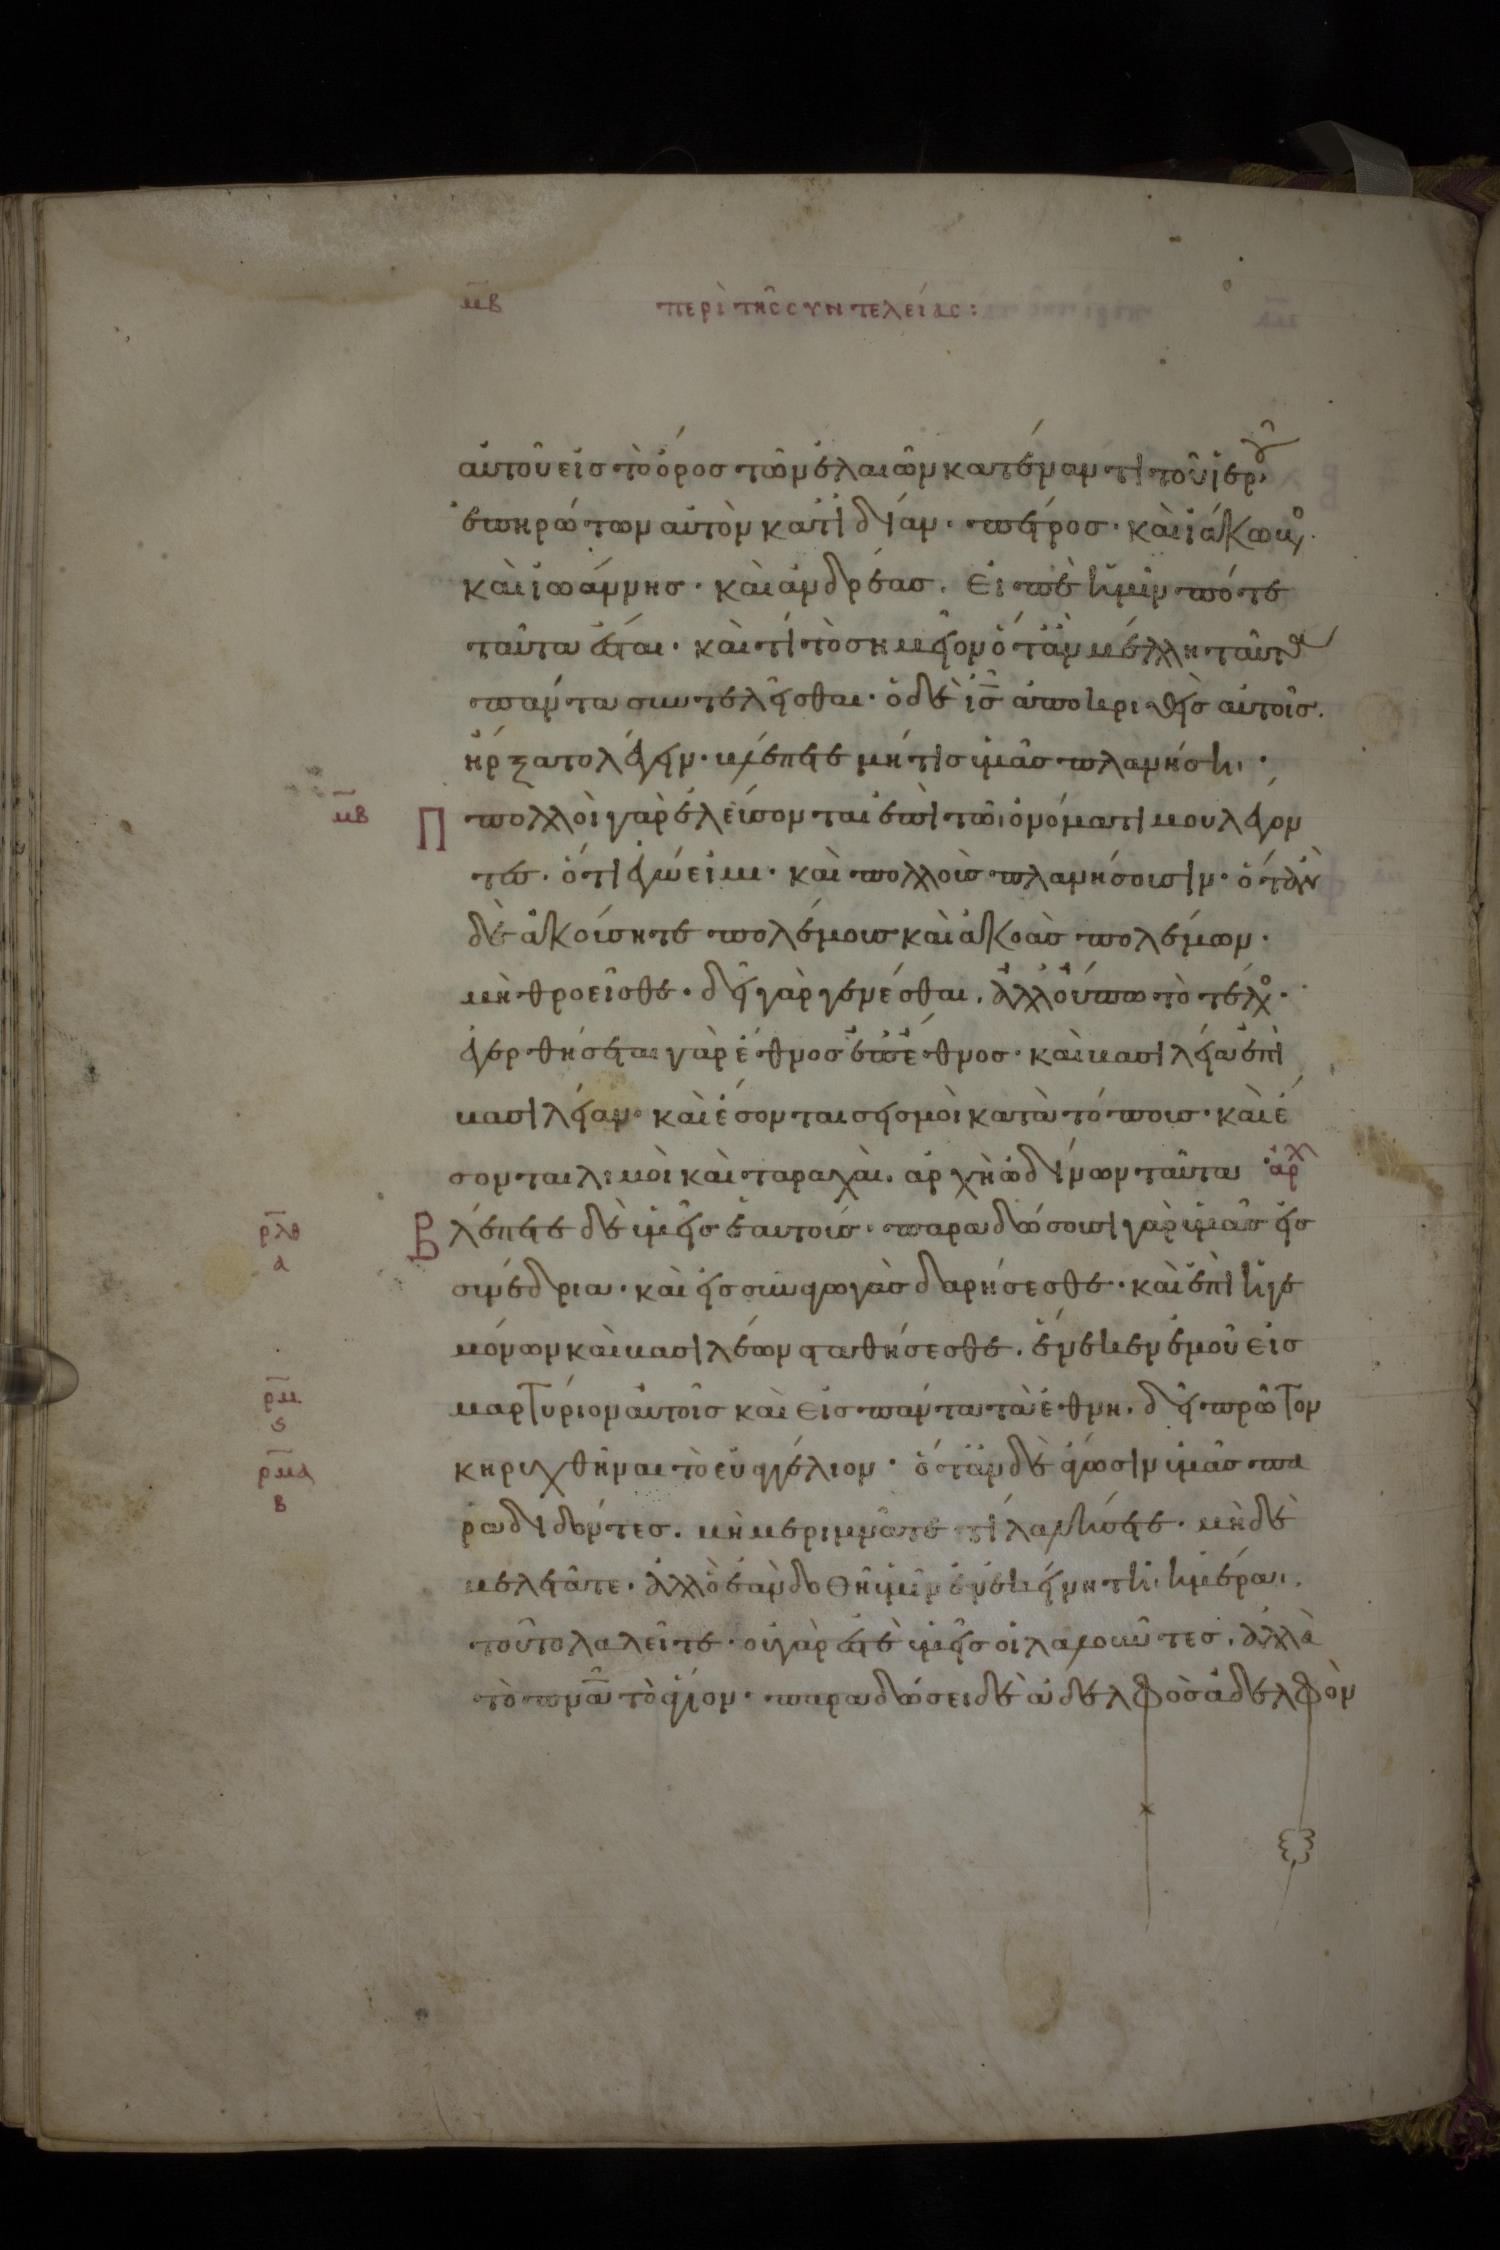 μβ περὶ τῆς συντελείας:
αὐτοῦ εἰς τὸ ὄρος τῶν ἐλαιῶν κατέναντι τοῦ ἱεροῦ
ἐπηρώτων αὐτὸν κατἰδίαν· πέτρος· καὶ ἰάκωβος·
καὶ ἰωάννης· καὶ ἀνδρέας. Εἰπὲ ἡμῖν πότε
ταῦτα ἔσται· καὶ τί τὸ σημεῖον ὅτὰν μέλλη ταῦτα
πάντα συντελεῖσθαι· ὁ δὲ ις ἀποκριθεὶς αὐτοῖς.
ἤρξατο λέγειν· βλέπετε μή τις ὑμᾶς πλανήση·
μβ Π πολλοὶ γὰρ ἐλεύσονται ἐπὶ τῶι ὀνόματί μου λέγον
τες· ὅτι ἐγώ εἰμι· καὶ πολλοὺς πλανήσουσιν· ὅταν
δὲ ἀκούσητε πολέμους καὶ ἀκοὰς πολέμων·
μὴ θροεῖσθε· δεῖ γὰρ γενέσθαι. ἀλλ οὔπω τὸ τέλος·
ἐγερθήσεται γὰρ ἔθνος ἐπ ἔθνος· καὶ βασιλεία ἐπὶ
βασιλείαν· καὶ ἔσονται σεισμοὶ κατὰ τόπους· καὶ ἔ
σονται λιμοὶ καὶ ταραχαὶ. ἀρχὴ ὠδίνων ταῦτα ἀρχ
ρλθ α Β λέπετε δὲ ὑμεῖς ἑαυτούς· παραδώσουσι γὰρ ὑμᾶς εἰς
συνέδρια· καὶ εἰς συναγωγὰς δαρήσεσθε· καὶ ἐπὶ ἡγε
μόνων καὶ βασιλέων σταθήσεσθε. ἕνεκεν ἐμοῦ εἰς
ρμ ς μαρτύριον αὐτοῖς καὶ εἰς πάντα τὰ ἔθνη. δεῖ πρῶτον
ρμα β κηρυχθῆναι τὸ εὐαγγέλιον· ὅτὰν δὲ ἄγωσιν ὑμᾶς πα
ραδιδόντες. μὴ μεριμνᾶτε τί λαλήσετε· μὴ δὲ
μελετᾶτε. ἀλλ ὃ ἐὰν δοθῆ ὑμῖν ἐν ἐκείνη τῆι ἡμέραι.
τοῦτο λαλεῖτε· οὐ γὰρ ἐστὲ ὑμεῖς οἱ λαλοῦντες. ἀλλὰ
τὸ πνα τὸ ἅγιον· παραδώσει δὲ ἀδελφὸς ἀδελφὸν